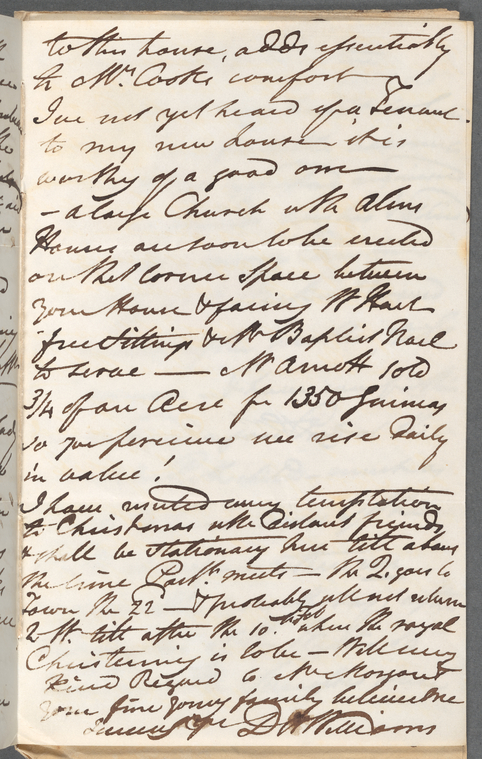 to this house, adds essentially
to Mrs. Cooks comfort
I've not yet heard of a Tenant
to my new house it is
worthy of a good one
- a large Church with Alms
Houses are soon to be erected
on that corner space between
your House & facing W Hart
free Sittings & Mr Baptist Noel
to serve — Mr Arnott sold
3/4 of an Acre for 1350 Guineas
so you perceive we rise Daily
in value!
I have resisted every temptation
to Christmas with Distant friends
& shall be stationary here till about
the time Parlt. meets — the Q. goes to
Town the 22 — & probably will not return
to W till after the 10th Feb when the royal
Christening is to be — With every
kind Regard to Mrs Morgan &
your fine young family believe me
Sincerely yrs D Williams